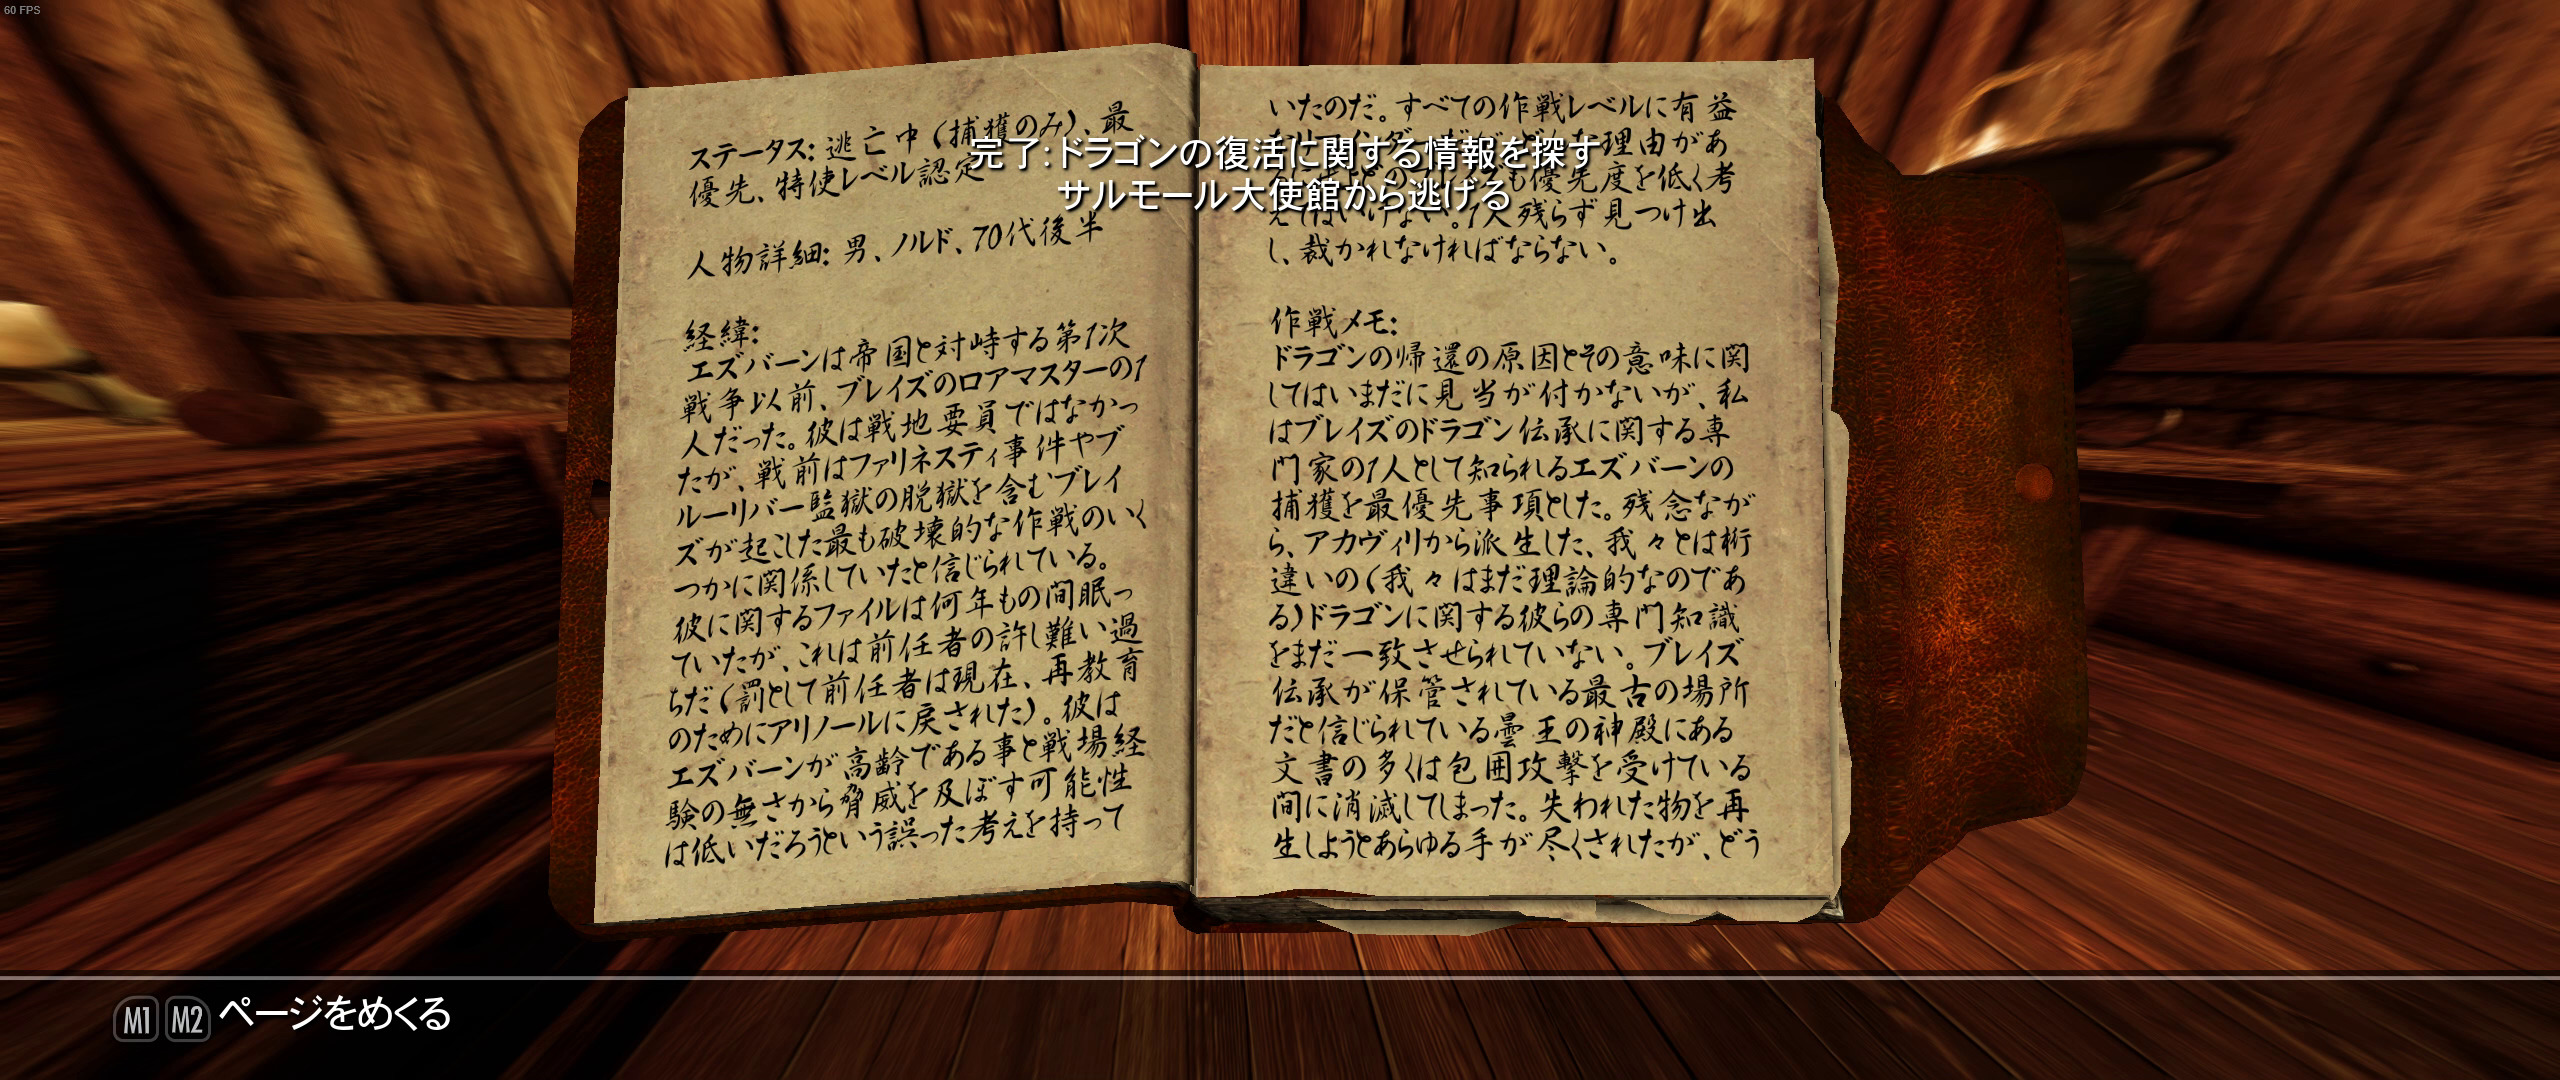 60 FPS
完了: ドラゴンの復活に関する情報を探す
サルモール大使館から逃げる
ステータス: 逃亡中 (捕獲のみ)、最
優先、特使レベル認定
人物詳細: 男、ノルド、70代後半
経緯:
エズバーンは帝国と対峙する第1次
戦争以前、ブレイズのロアマスターの1
人だった。彼は戦地要員ではなかっ
たが、戦前はファリネスティ事件やブ
ルーリバー監獄の脱獄を含むブレイ
ズが起こした最も破壊的な作戦のいく
つかに関係していたと信じられている。
彼に関するファイルは何年もの間眠っ
ていたが、これは前任者の許し難い過
ちだ (罰として前任者は現在、再教育
のためにアリノールに戻された)。彼は
エズバーンが高齢である事と戦場経
験の無さから脅威を及ぼす可能性
は低いだろうという誤った考えを持って
いたのだ。すべての作戦レベルに有益
な理由があ
も優先度を低く考
えてはいけない。1人残らず見つけ出
し、裁かれなければならない。
作戦メモ:
ドラゴンの帰還の原因とその意味に関
してはいまだに見当が付かないが、私
はブレイズのドラゴン伝承に関する専
門家の1人として知られるエズバーンの
捕獲を最優先事項とした。残念なが
ら、アカヴィリから派生した、我々とは桁
違いの (我々はまだ理論的なのであ
る) ドラゴンに関する彼らの専門知識
をまだ一致させられていない。ブレイズ
伝承が保管されている最古の場所
だと信じられている曇王の神殿にある
文書の多くは包囲攻撃を受けている
間に消滅してしまった。失われた物を再
生しようとあらゆる手が尽くされたが、どう
M1 M2 ページをめくる